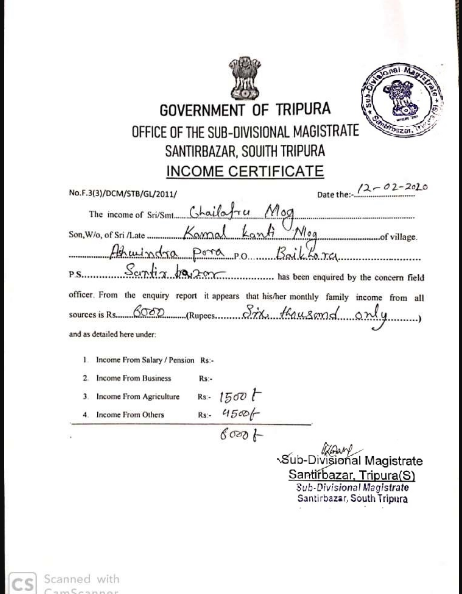 GOVERNMENT OF TRIPURA
OFFICE OF THE SUB-DIVISIONAL MAGISTRATE
SANTIRBAZAR, SOUITH TRIPURA
INCOME CERTIFICATE
No.F.3(3)/DCM/STB/GL/2011/ Date the:- 12-02-2020
The income of Sri/Smt. Chailafru Mog
Son,W/o, of Sri /Late Kamal Kanti Mog of village.
Para P.O. Baikhora
P.S. Santir bazar has been enquired by the concern field
officer. From the enquiry report it appears that his/her monthly family income from all
sources is Rs. 6000 (Rupees. Six thousand only)
and as detailed here under:
1. Income From Salary / Pension Rs:-
2. Income From Business Rs:-
3. Income From Agriculture Rs:- 1500/-
4. Income From Others Rs:- 4500/-
6000/-
Sub-Divisional Magistrate
Santirbazar, Tripura(S)
Sub-Divisional Magistrate
Santirbazar, South Tripura
Sub-Divisional Magistrate
Santirbazar,
CS Scanned with
CamScanner